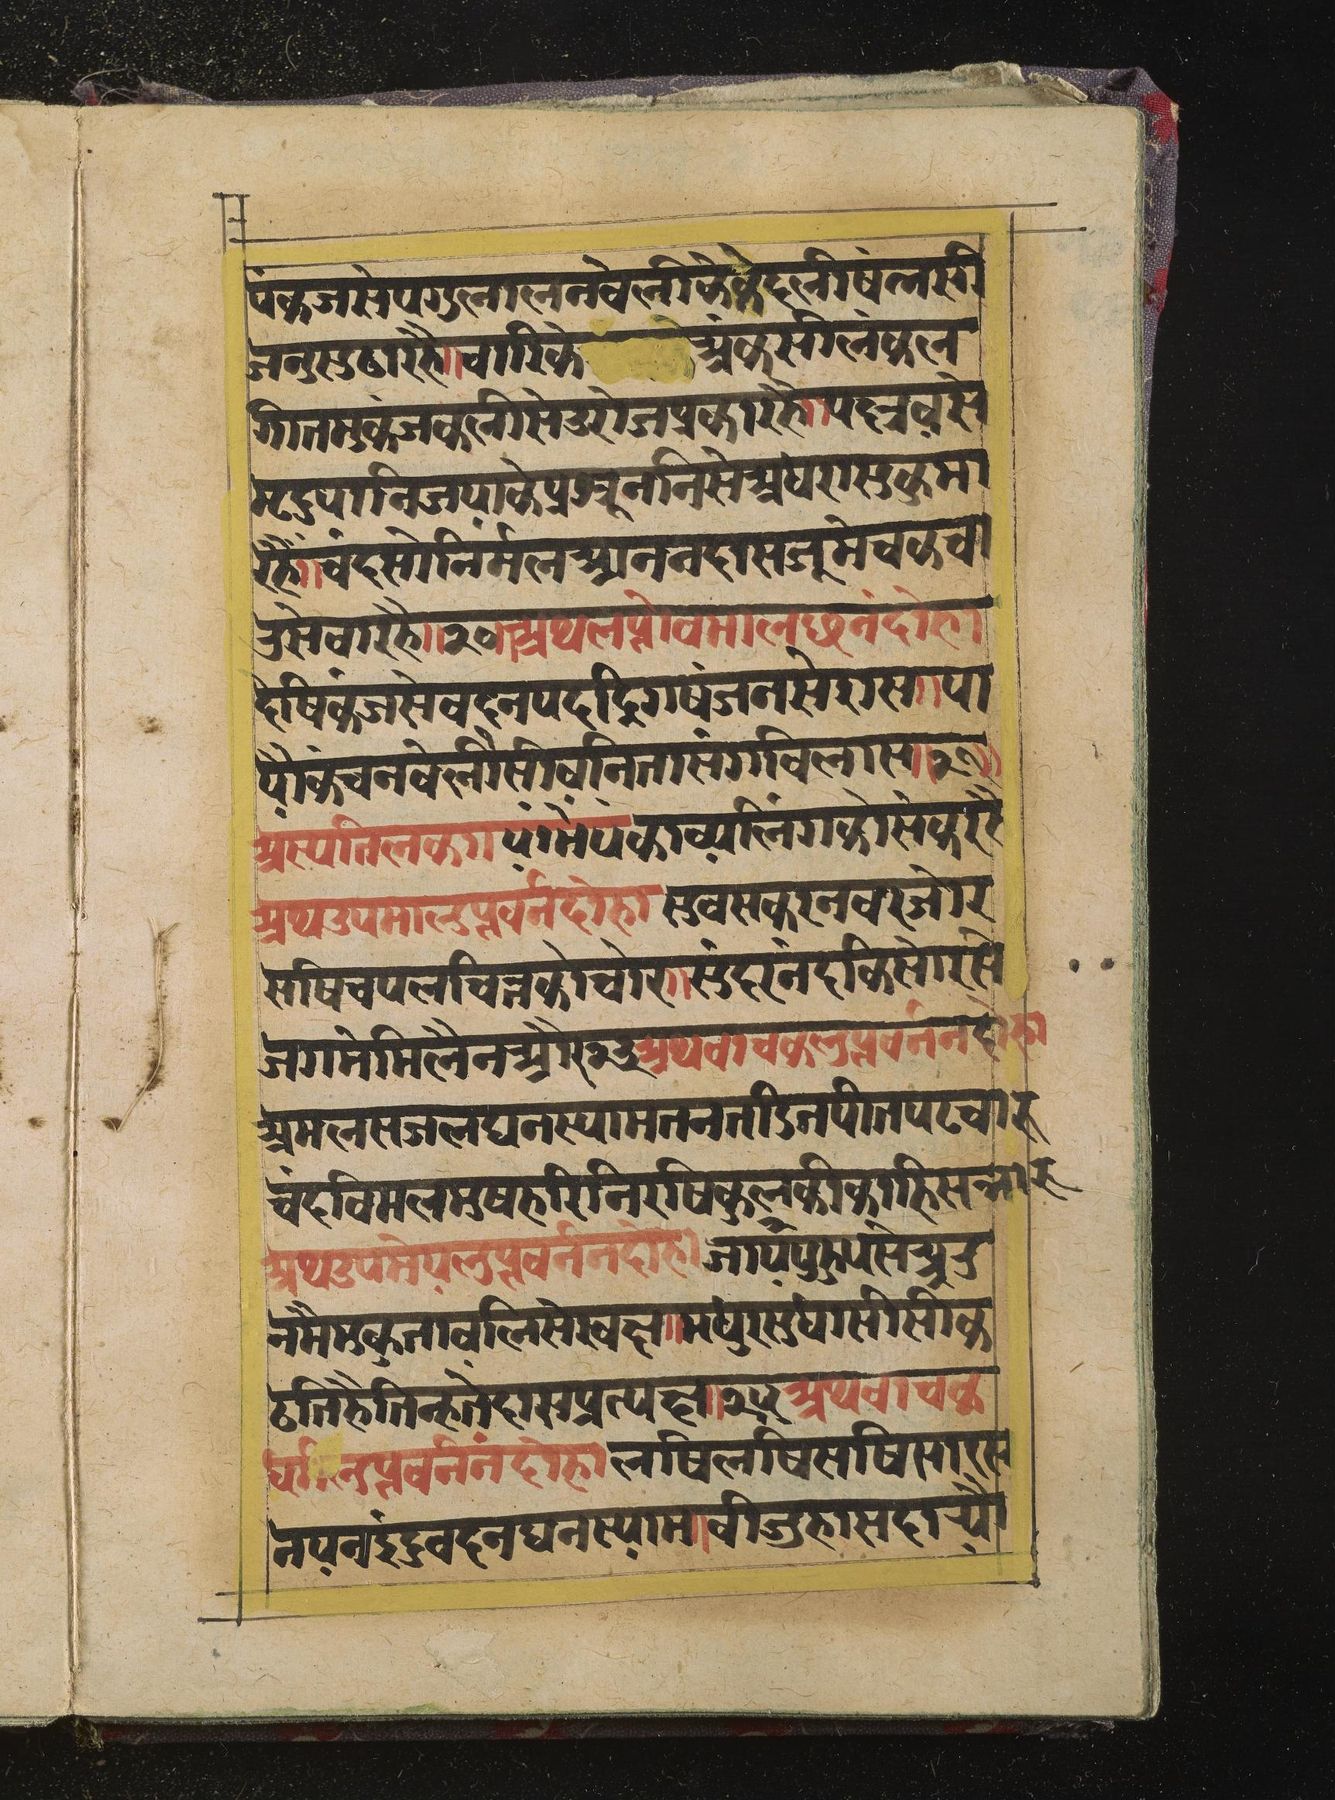 पंकजसेपगुलालनवेलीकेकेदलीषंनसी
जनुसुढारहै॥चारिके अंकसीलंकल
गीतमुकंजकलीसेउरोजप्रकारहै॥पदत्रवसे
मृदुपानिजपाकेप्रसूननिसेअधरासुकुमा
रहैं॥चंदसोनिर्मलआननदाससुमेचकचा
उसेवारहै॥३०॥अथलप्तोवमालछनंदोहा
देषिकंजसेवदनपददिृगषंजनसेदास॥पा
यौकंचनवेलीसीवनितासंगविलास॥३१॥
अस्पतिलकगयंमेयंकाव्यलिंगकोसंकरहै
अथउपमालुप्तवर्नदोहा सुवसकरनवरजोर
सषिचपलचित्तकोचोर॥सुंदरनंदकिसोरसे
जगमेमिलैनऔर३३अथवाचकलुप्तवर्ननदोहा
अमलसजलघनस्यामतनतडितपीतपटचारु
चंदविमलमुषहरिनिरषिकुलकीकाहिसन्मारु
अथउपमेयलुप्तवर्ननदोहा जापंपुहुपसेअरु
नमैमुकुतावलिसेस्वछ॥मधुरसुधासीसीक
ठतिहैतिन्हतेदासप्रत्यछ॥३५अथवाचक
र्धमलुप्तवर्ननंदोहा लषिलषिसषिसारस
नयनइंदुवदनघनस्याम॥वीजुहासदार्‍यौ